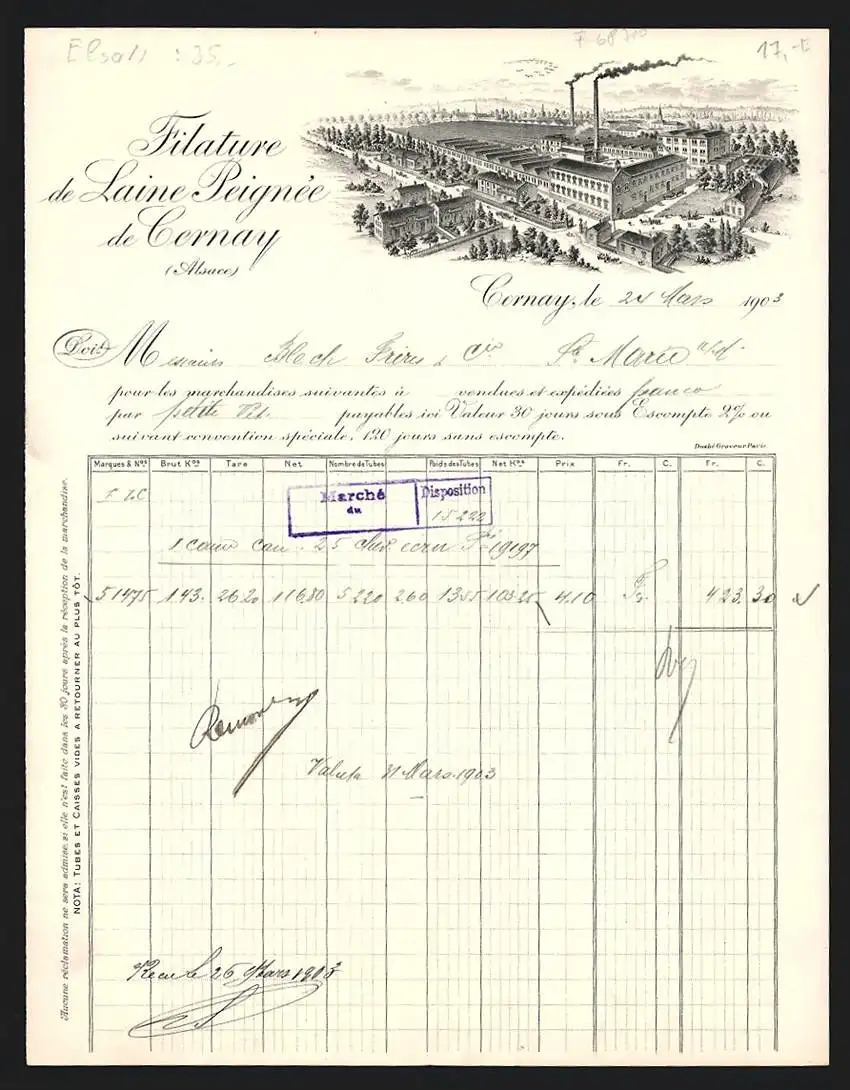 17,-E
Filature
de Laine Peignée
de Cernay
(Alsace)
Cernay, le 24 Mars 1903
Doit Messieurs Bloch Frères & Cie Ste Marie a/M
pour les marchandises suivantes à vendues et expédiées franco
par petite Vit. payables ici Valeur 30 jours sous Escompte 2% ou
suivant convention spéciale, 120 jours sans escompte.
Marques & Nos Brut Kos Tare Net Nombre de Tubes Poids des Tubes Net Kos Prix Fr. C. Fr. C.
Marché
du
Disposition
15222
25 19197
51475 143. 26 20 116 80 5 220 260 13 55 103.25 4.10 Fs. 423. 30
Valuta 31 Mars 1903
Recu le 26 Mars 1903
Aucune réclamation ne sera admise, si elle n'est faite dans les 30 jours après la réception de la marchandise.
NOTA: TUBES ET CAISSES VIDES A RETOURNER AU PLUS TÔT.